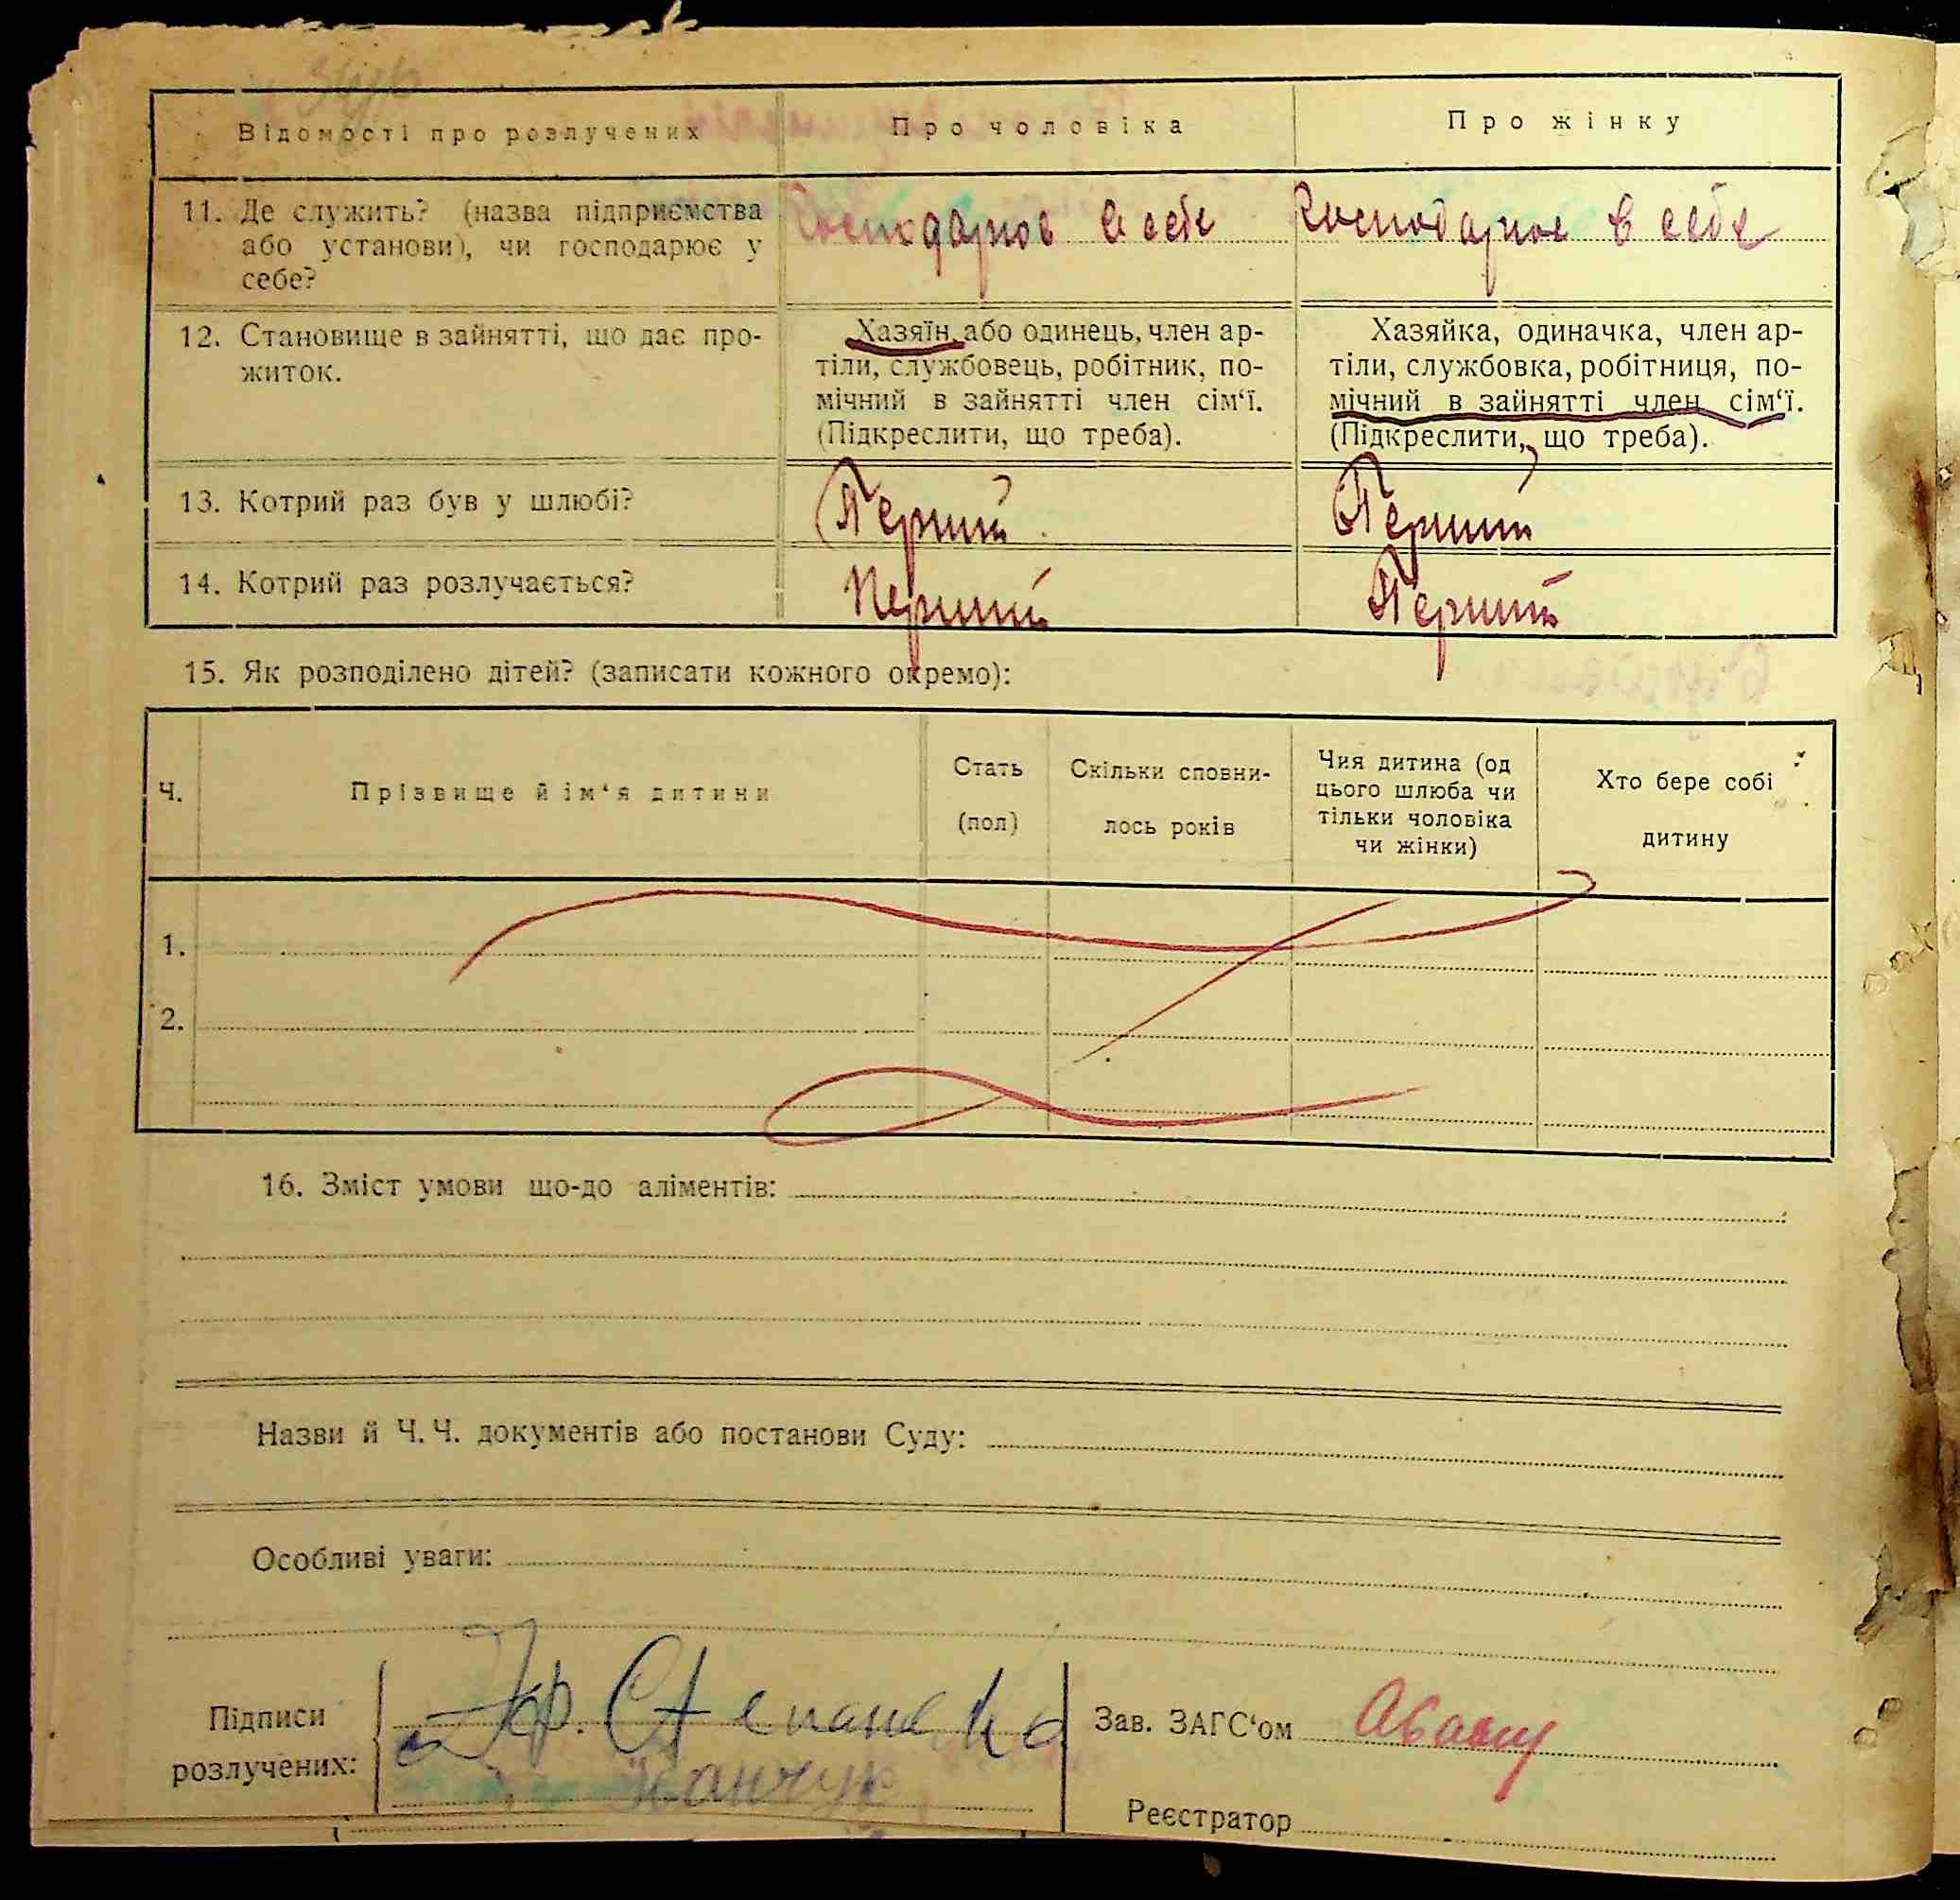 Відомості про розлучених
Про чоловіка
Про жінку
11. Де служить? (назва підприємства
або установи), чи господарює у
себе?
Господарює в себе
Господарює в себе
12. Становище в зайнятті, що дає про-
житок.
Хазяїн, або одинець, член ар-
тіли, службовець, робітник, по-
мічний в зайнятті член сім‘ї.
(Підкреслити, що треба).
Хазяйка, одиначка, член ар-
тіли, службовка, робітниця, по-
мічний в зайнятті член сім‘ї.
(Підкреслити, що треба).
13. Котрий раз був у шлюбі?
Перший
Перший
14. Котрий раз розлучається?
Перший
Перший
15. Як розподілено дітей? (записати кожного окремо):
Ч.
Прізвище й ім‘я дитини
Стать
(пол)
Скільки сповни-
лось років
Чия дитина (од
цього шлюба чи
тільки чоловіка
чи жінки)
Хто бере собі
дитину
1.
2.
16. Зміст умови що-до аліментів:
Назви й Ч. Ч. документів або постанови Суду:
Особливі уваги:
Підписи
розлучених:
Зав. ЗАГС‘ом
Реєстратор